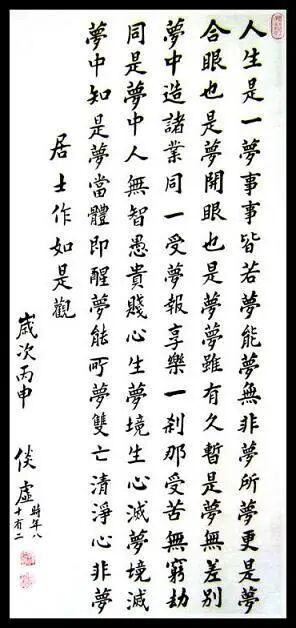 人生是一夢事事皆若夢能夢無非夢所夢更是夢
合眼也是夢開眼也是夢夢雖有久暫是夢無差別
夢中造諸業同一受夢報享樂一剎那受苦無窮劫
同是夢中人無智愚貴賤心生夢境生心滅夢境滅
夢中知是夢當體即醒夢能所夢雙亡清淨心非夢
居士作如是觀
歲次丙申 倓虛
時年八
十有二